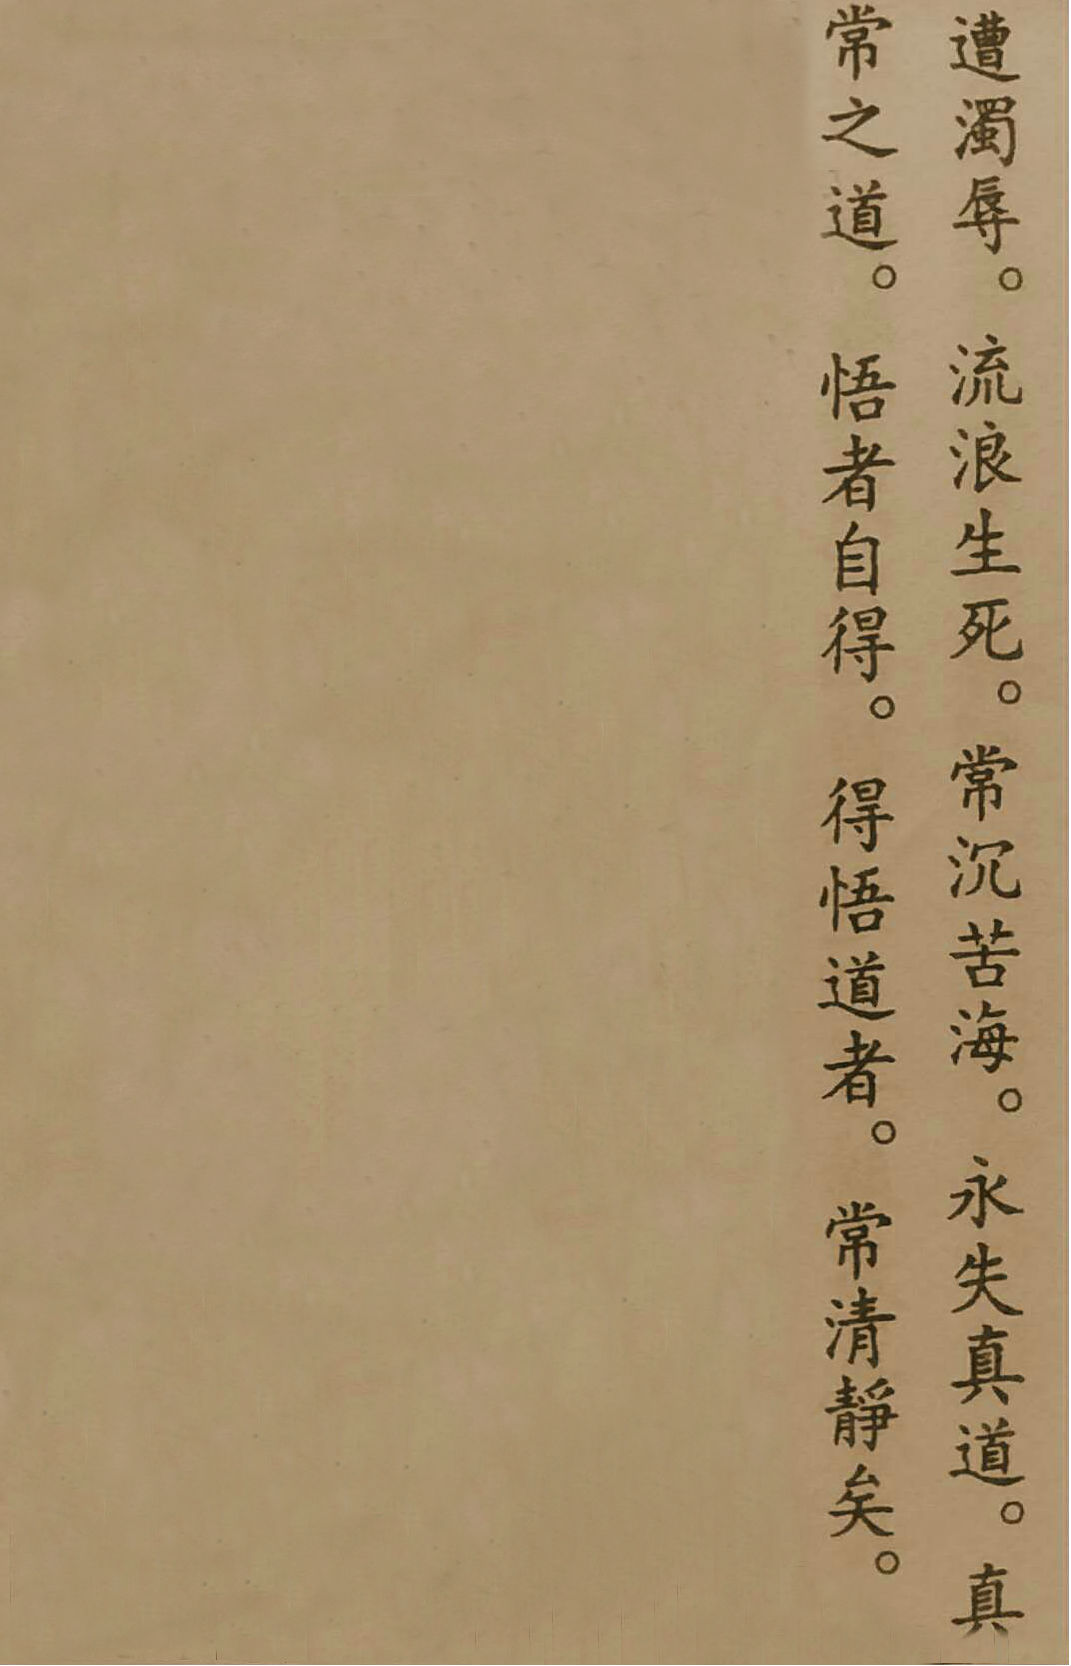 遭濁辱。流浪生死。常沉苦海。永失真道。真
常之道。悟者自得。得悟道者。常清靜矣。